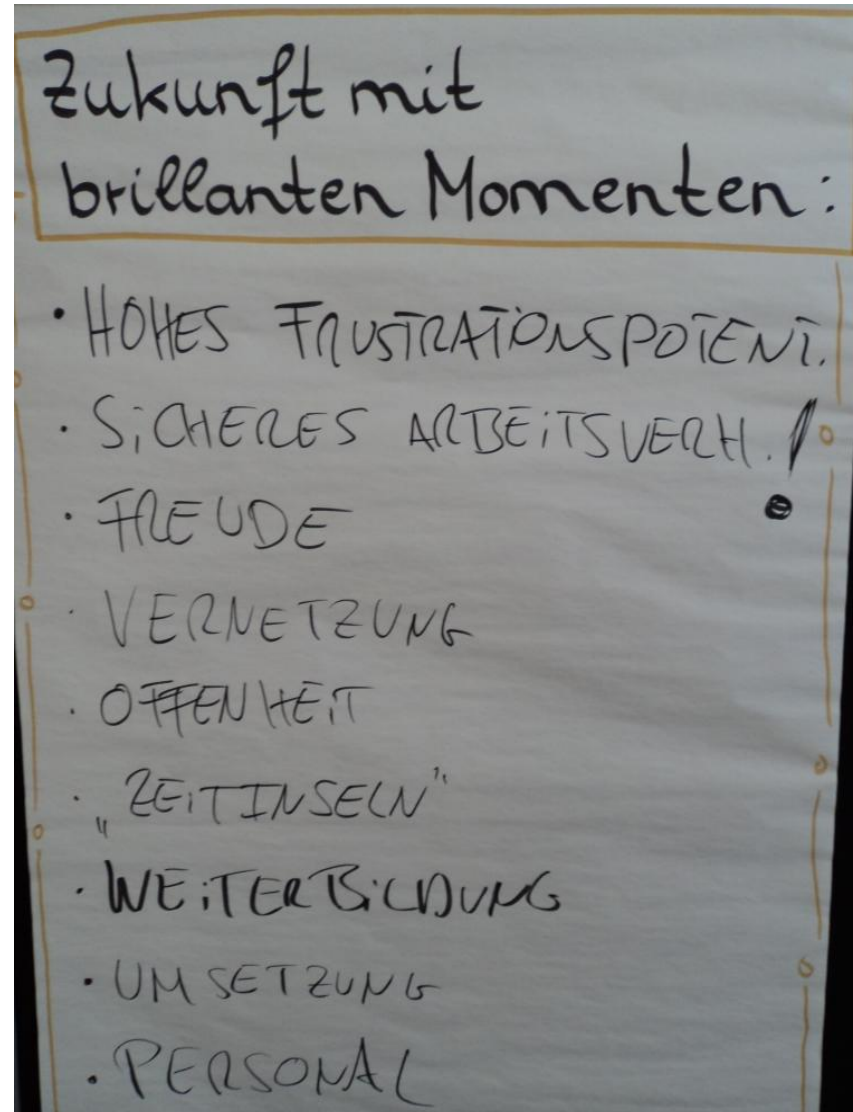 Zukunft mit
brillanten Momenten:
• HOHES FRUSTRATIONSPOTENT.
• SiCHERES ARBEiTSVERH. !
• FREUDE
• VERNETZUNG
• OFFENHEiT
• „ZEiTINSELN"
• WEiTERBiLDUNG
• UMSETZUNG
• PERSONAL